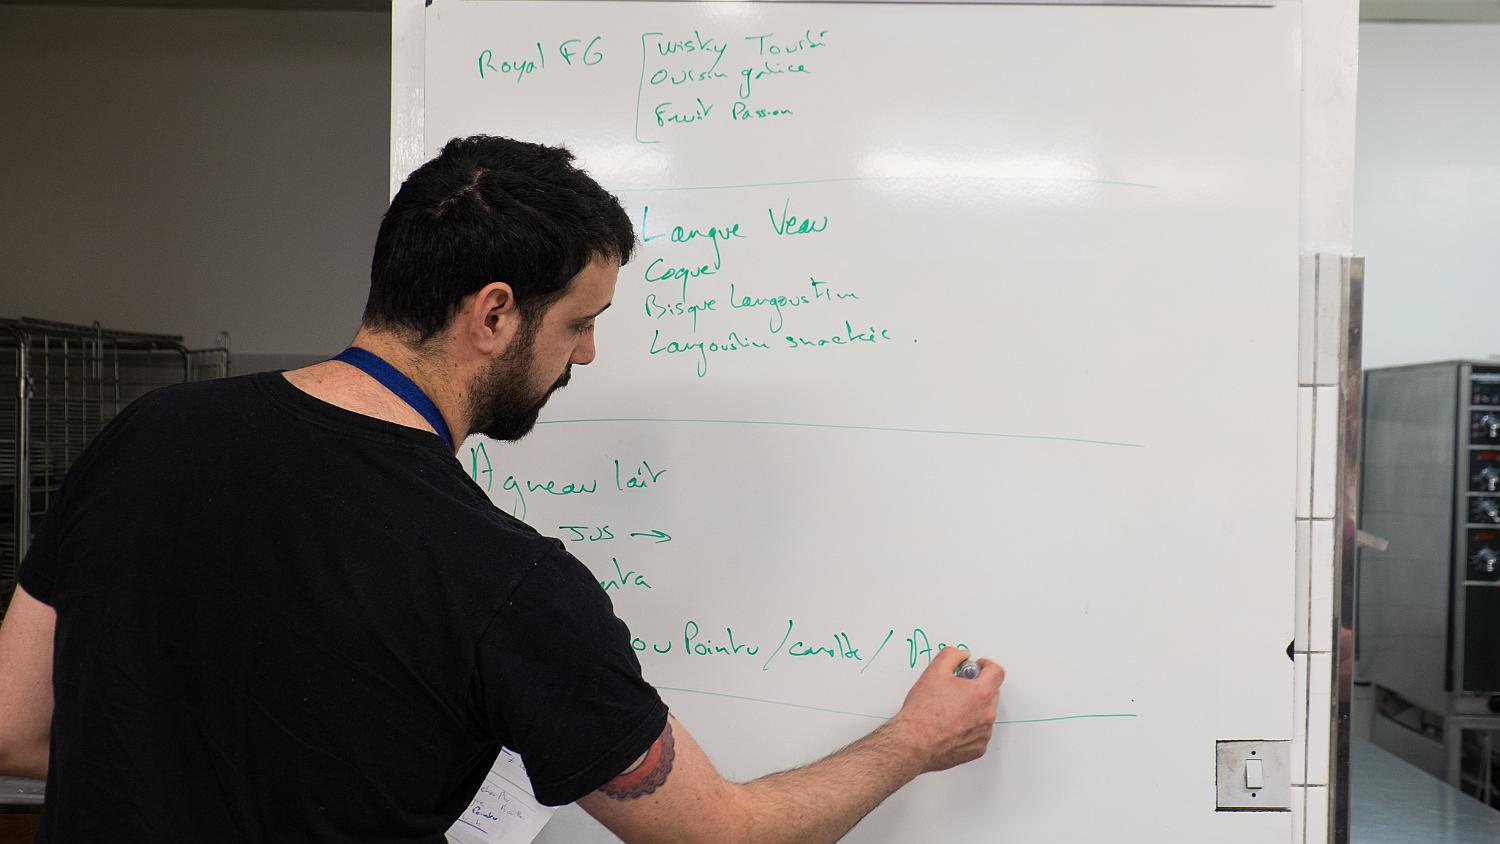 Royal FG
Wisky Tourbé
Oursin galice
Fruit Passion
Langue Veau
Coque
Bisque Langoustine
Langoustine snackée.
Agneau lait
JUS →
nta
ou Pointu / carotte / Asp